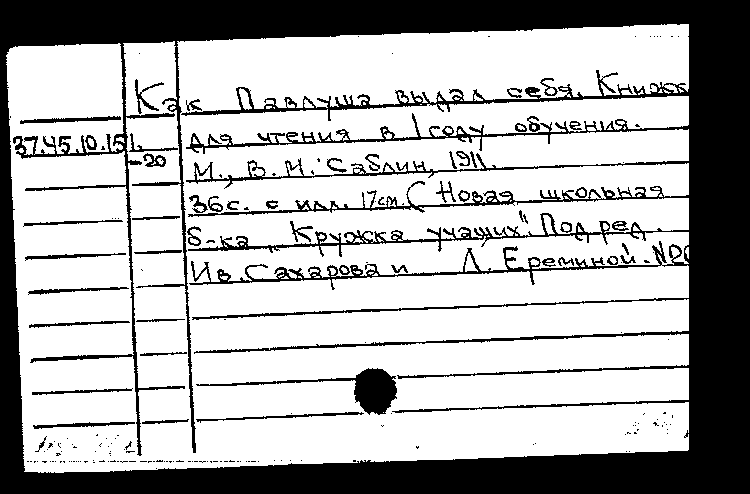 Как Павлуша выдал себя. Книжк
37.45.10.151. для чтения в I году обучения.
-20 М., В. М. Саблин, 1911.
36с. с илл. 17см. ( Новая школьная
б-ка „Кружка учащих". Под ред.
Ив. Сахарова и Л. Ереминой. №